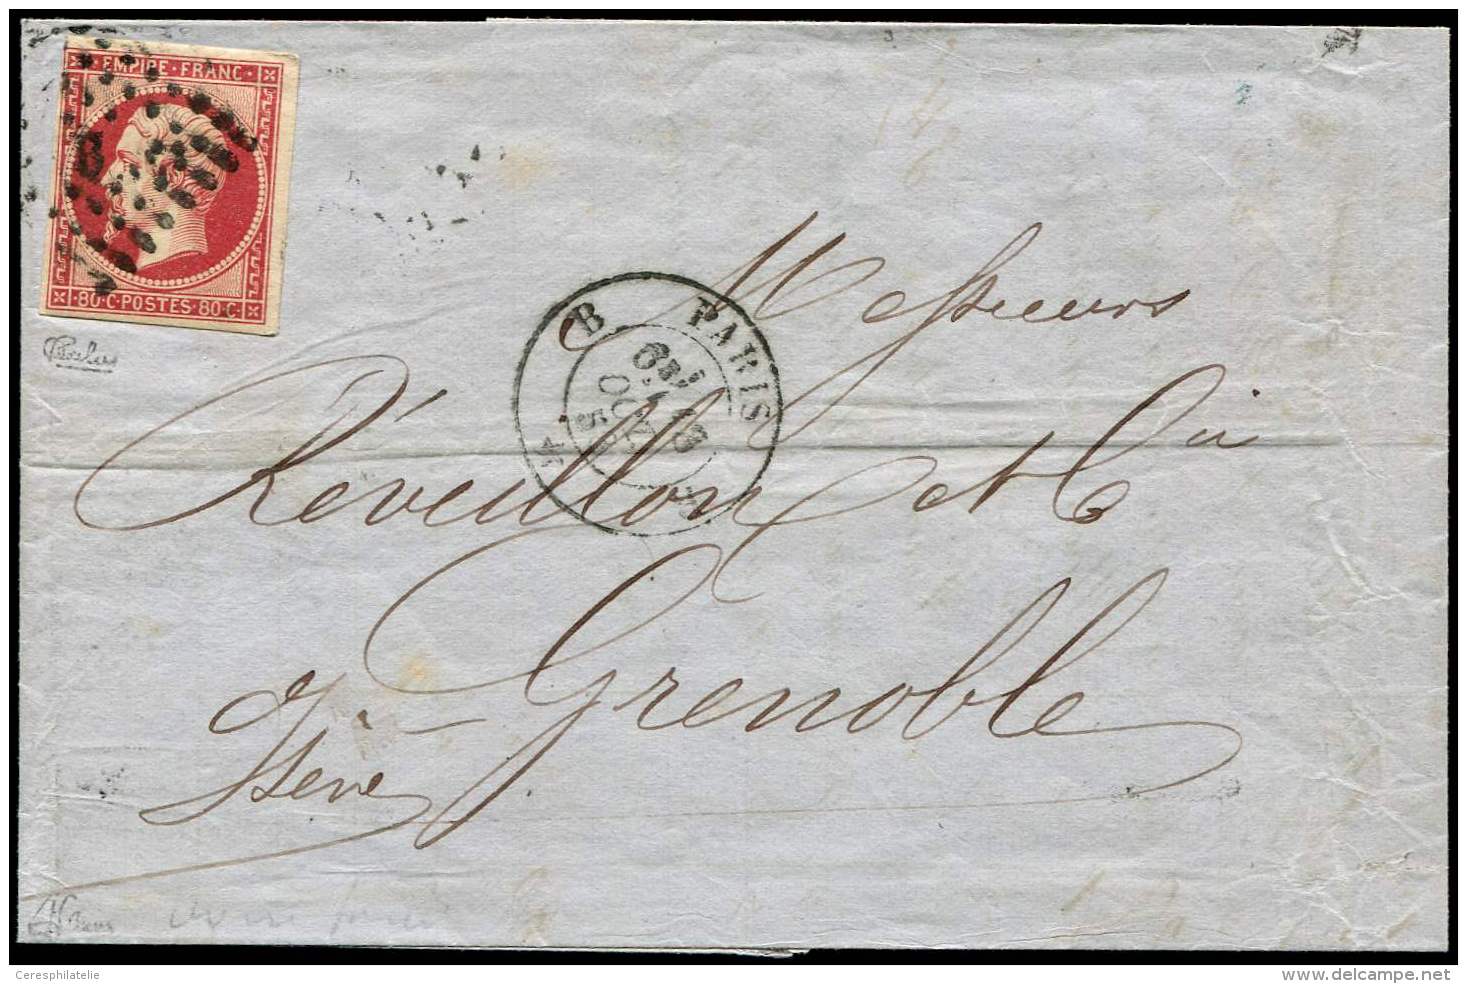 EMPIRE · FRANC ·
· 80 · C · POSTES · 80 · C ·
Messieurs
PARIS
B
Réveillon et Cie
à Grenoble
Isère
Ceresphilatelie
www.delcampe.net